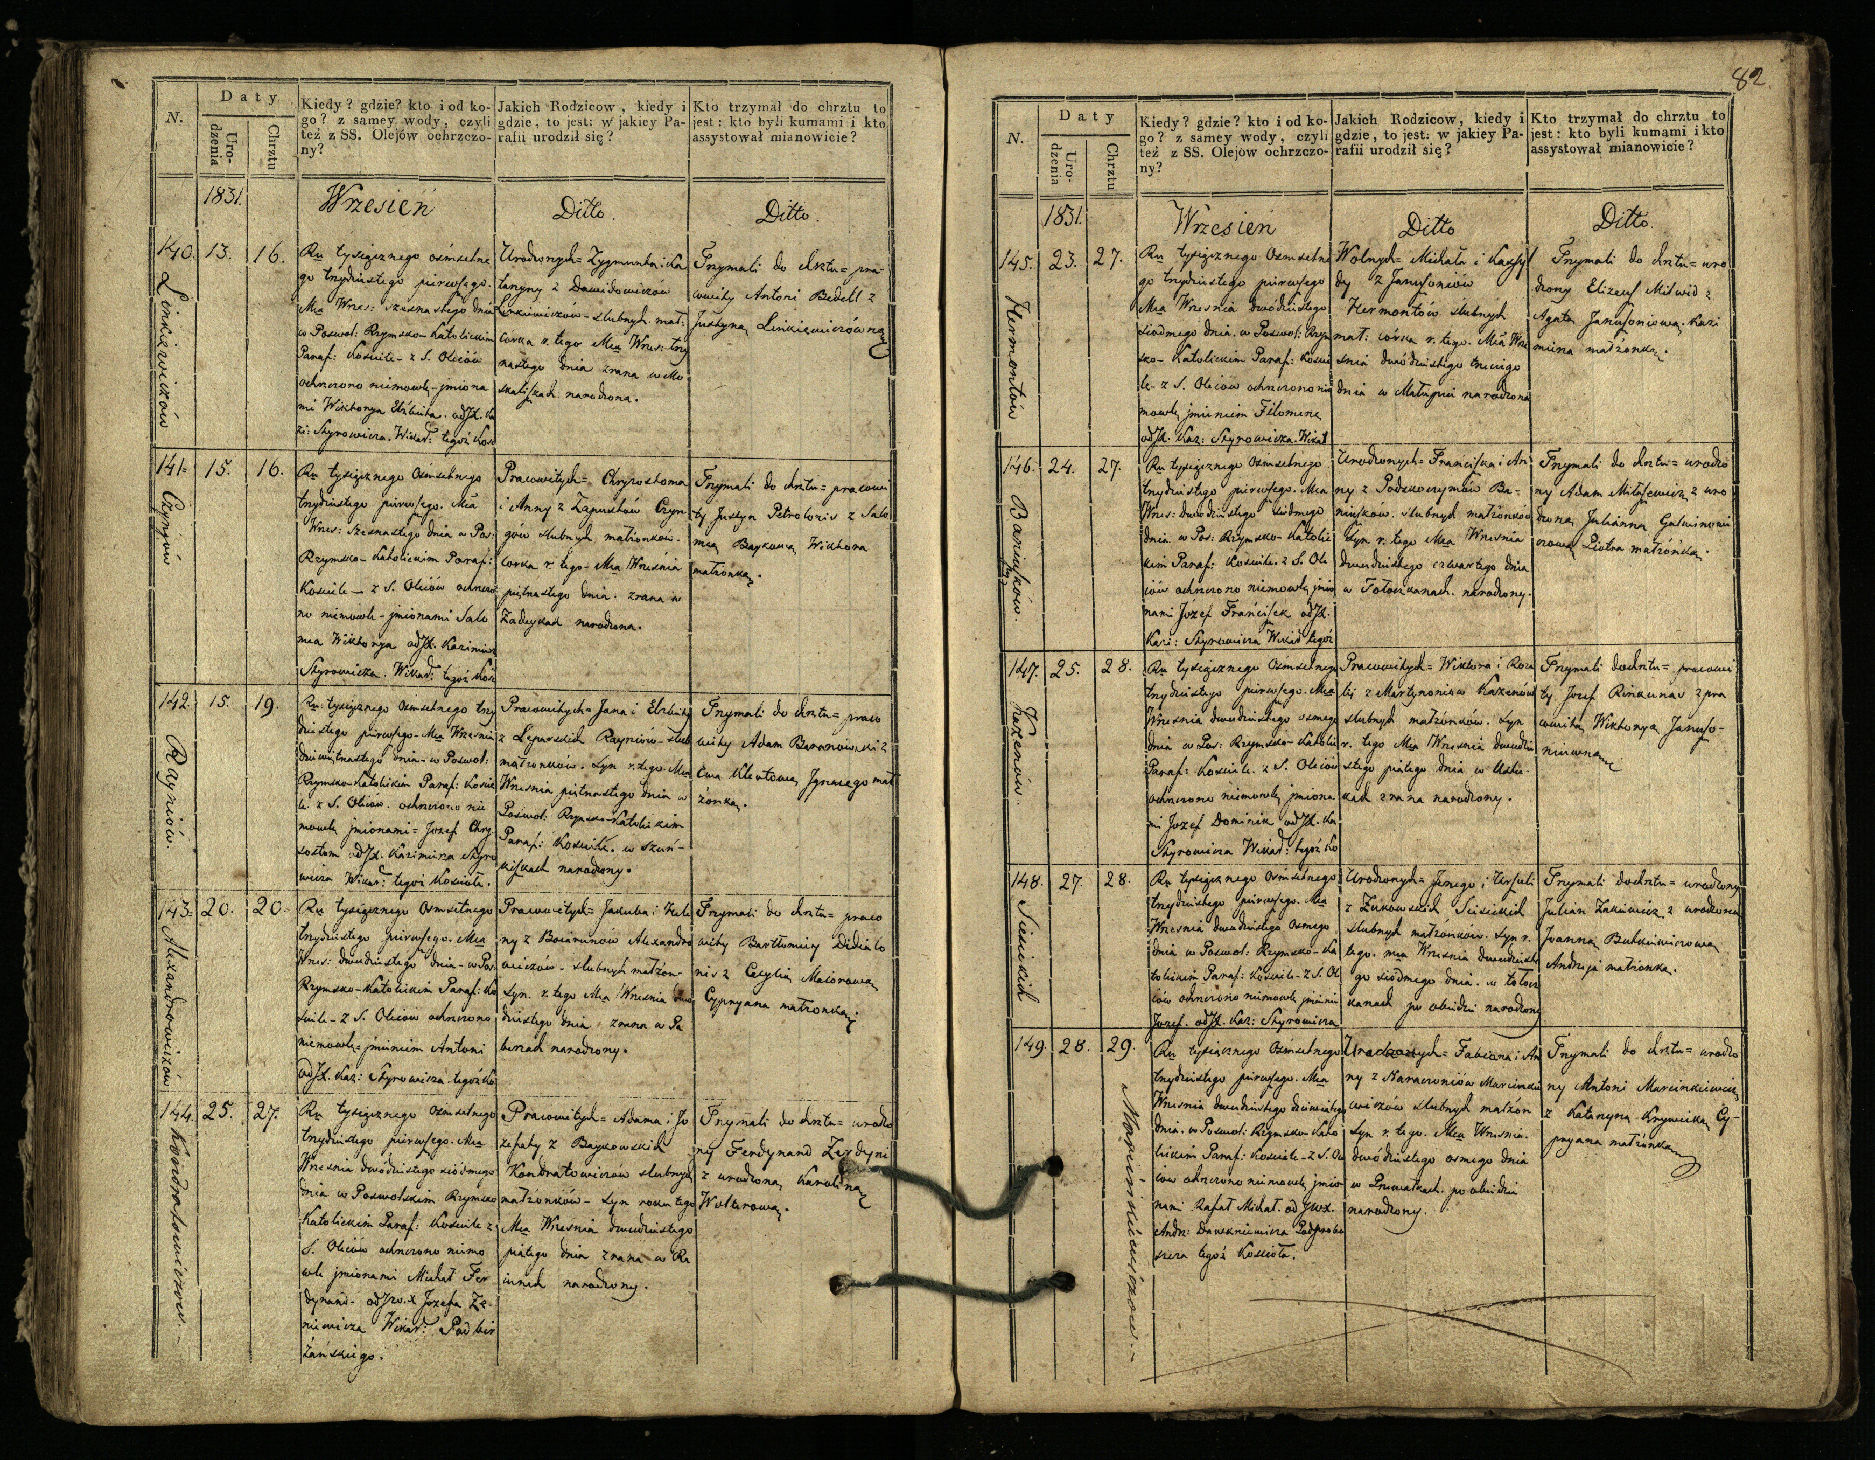 N.
Daty
Uro-
dzenia
Chrztu
Kiedy? gdzie? kto i od ko-
go? z samey wody, czyli
też z SS. Olejów ochrzczo-
ny?
Jakich Rodzicow, kiedy i
gdzie, to jest: w jakiey Pa-
rafii urodził się?
Kto trzymał do chrztu to
jest: kto byli kumami i kto
assystował mianowicie?
1831.
Wrzesień
Ditto.
Ditto.
140.
Linkiewiczów
13.
16.
Ru tysiącznego ośmsetne
go trzydziestego pierwszego.
Mca Wrześ: szesnastego dnia
w Poswol: Rzymsko-Katolickim
Paraf: Kościele - z S. Oleiów
ochrzczono niemowlę - jmiona
mi Wiktorya Elżbieta. od JX. Ka
zi: Styrowicza. Wikar: tegoż Kość
Urodzonych = Zygmunta i Ka
tarzyny z Dawidowiczów
Linkiewiczów - slubnych. małż:
corka r. tego Mca Wrześ: trzy
nastego dnia zrana w Mo
skaliszkach. narodzona.
Trzymali do chrztu = pra-
cowity Antoni Bedell z
Justyną Linkiewiczówną
141.
Czyngów
15.
16.
Ru tysiącznego Osmsetnego
trzydziestego pierwszego. Mca
Wrześ: Szesnastego dnia w Pos:
Rzymsko-Katolickim Paraf:
Kościele - z S. Oleiów ochrzczo
no niemowle - jmionami Salo
mea Wiktorya od JX. Kazimierz
Styrowicza. Wikar: tegoż Kość
Pracowitych = Chryzostoma
i Anny z Zapustów Czyn
gów slubnych małżonków.
corka r. tego - Mca Września
piętnastego dnia. zrana w
Zadeykach narodzona.
Trzymali do chrztu = pracowi
ty Justyn Petrolowis z Salo
meą Baykową Wiktora
małżonką.
142.
Rayniów.
15.
19.
Ru tysiącznego Osmsetnego trzy
dziestego pierwszego - Mca Września
dziewiętnastego dnia - w Poswol:
Rzymsko-Katolickim Paraf: Koście
le. z S. Oleiów. ochrzczono nie
mowlę jmionami = Jozef Chry
zostom od JX. Kazimierza Styro
wicza Wikar: tegoż Kościoła.
Pracowitych = Jana i Elżbiety
z Lejarskich Rayniów - slub
małżonków. Syn r. tego Mca
Września piętnastego dnia w
Poswol: Rzymsko-Katolickim
Paraf: Kościele. w Szuń-
kiszkach narodzony.
Trzymali do chrztu = praco
wity Adam Baranowski z
Ewą Klewtową Jgnacego mał
żonką.
143.
Alexandrowiczów.
20.
20.
Ru tysiącznego Osmsetnego
trzydziestego pierwszego. Mca
Wrześ: dwudziestego dnia - w Pos:
Rzymsko-Katolickim Paraf: Ko
ściele - z S. Oleiów ochrzczono
niemowlę = jmieniem Antoni
od JX. Kaz: Styrowicza. tegoż Ko
Pracowitych = Jakuba i Hele
ny z Boiarunów Alexandro
wiczów - slubnych małżon-
Syn. r. tego Mca Września dwu
dziestego dnia, zrana w Pa
berżach narodzony.
Trzymali do chrztu = praco
wity Bartłomiey Didialo
nis z Cecylią Maiorową
Cypryana małżonką.
144.
Kondratowiczów.
25.
27.
Ru tysiącznego Osmsetnego
trzydziestego pierwszego - Mca
Września dwódziestego siódmego
dnia w Poswolskim Rzymsko
Katolickim Paraf: Kościele z
S. Oleiów ochrzczono niemo
wle jmionami Michał Fer
dynand. od JW. X Jozefa Ze-
niewicza Wikar: Podbir
żańskiego.
Pracowitych = Adama i Jo
zefaty z Baykowskich
Kondratowiczów slubnych
małżonków - Syn roku tego
Mca Września dwudziestego
piątego dnia zrana w Ra
iunch narodzony.
Trzymali do chrztu = urodzo
ny Ferdynand Zerdyni
z urodzoną Karoliną
Wolterową.
82.
N.
Daty
Uro-
dzenia
Chrztu
Kiedy? gdzie? kto i od ko-
go? z samey wody, czyli
też z SS. Olejów ochrzczo-
ny?
Jakich Rodzicow, kiedy i
gdzie, to jest: w jakiey Pa-
rafii urodził się?
Kto trzymał do chrztu to
jest: kto byli kumami i kto
assystował mianowicie?
1831.
Wrzesień
Ditto
Ditto.
145.
Hermontów
23.
27.
Ru tysiącznego Osmsetne
go trzydziestego pierwszego
Mca Września dwódziestego
siódmego dnia. w Poswol: Rzym
sko-Katolickim Paraf: Koście
le - z S. Oleiów ochrzczono nie
mowlę jmieniem Filomena
od JX. Kaz: Styrowicza. Wikar
Wolnych = Michała i
z Januszoniów
Hermontów slubnych
mał: córka r. tego. Mca Wrze
śnia dwódziestego trzeciego
dnia w Małupiu narodzona
Trzymali do chrztu = uro
dzony Elizeusz Mitwid z
Agatą Januszoniową. Kazi
mierza małżonką.
146.
Baniukow.
24.
27.
Ru tysiącznego Osmsetnego
trzydziestego pierwszego. Mca
Wrześ: dwudziestego siódmego
dnia. w Pos: Rzymsko-Katolic
kim Paraf: Kościele. z S. Ole
iów ochrzczono niemowlę jmio
nami Jozef Franciszek od JX.
Kazi: Styrowicza Wikar tegoż
Urodzonych = Franciszka i An
ny z Podskoczymów Ba-
niukow. slubnych małżonków
Syn r. tego Mca Września
dwudziestego czwartego dnia
w Tołoczkanach. narodzony.
Trzymali do chrztu = urodzo
ny Adam Miłaszewicz z uro
dzoną Julianną Gulwinowi
czową Piotra małżonką.
147.
Kazenów.
25.
28.
Ru tysiącznego Osmsetnego
trzydziestego pierwszego. Mca
Września dwudziestego osmego
dnia w Pos: Rzymsko-Katolic
Paraf: Kościele. z S. Oleiów
ochrzczono niemowlę jmiona
mi Jozef Dominik od JX. Ka
Styrowicza Wikar: tegoż Ko
Pracowitych = Wiktora i Roza
lij z Martynoniów Kazenów
slubnych małżonków. Syn
r. tego Mca Września dwudzie
stego piątego dnia w
kach zrana narodzony.
Trzymali do chrztu = pracowi
ty Jozef Rinkunas z pra
cowitą Wiktoryą Januszo-
niowną
148.
Siesickich
27.
28.
Ru tysiącznego Osmsetnego
trzydziestego pierwszego. Mca
Września dwudziestego osmego
dnia w Poswol: Rzymsko-Ka
tolickim Paraf: Kościele - z S. Ol
iów ochrzczono niemowlę jmieni
Jozef. od JX. Kaz: Styrowicza
Urodzonych = Jerzego i Urszuli
z Zukowskich Siesickich
slubnych małżonków. Syn r.
tego. mca Września dwudzieste
go siódmego dnia. w Tołocz
kanach po obiedzi narodzony
Trzymali do chrztu = urodzony
Julian Zakiewicz z urodzoną
Joanną Butkiewiczową
Andrzeja małżonką.
149.
Marcinkiewiczow.
28.
29.
Ru tysiącznego Osmsetnego
trzydziestego pierwszego. Mca
Września dwudziestego dziewiątego
dnia. w Poswol: Rzymsko-Kato
lickim Paraf: Kościele - z S. Ole
iów ochrzczono niemowlę jmio
nami Rafał Michał. od JWX.
Andr: Dawkniewicza Podprobo
szcza tegoż Kościoła.
Urodzonych = Fabiana i An
ny z Marcinkie
wiczów slubnych małżon
Syn r. tego. Mca Września.
dwódziestego osmego dnia
w Pniewatkach. po obiedzi
narodzony.
Trzymali do chrztu = urodzo
ny Antoni Marcinkiewicz
z Katarzyną Krzywicką Cy-
pryana małżonką